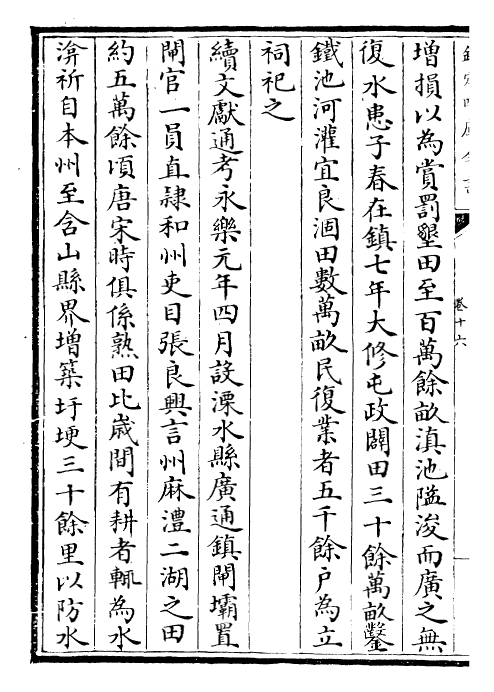 增損以為賞罰墾田至百萬餘畝滇池隘浚而廣之無
復水患子春在鎮七年大修屯政闢田三十餘萬畝鑿
鐵池河灌宜良涸田數萬畝民復業者五千餘户為立
祠祀之
續文獻通考永樂元年四月設溧水縣廣通鎮閘壩置
閘官一員直隷和州吏目張良興言州麻澧二湖之田
約五萬餘頃唐宋時俱係熟田比歲間有耕者輒為水
渰祈自本州至含山縣界增築圩埂三十餘里以防水
卷十六